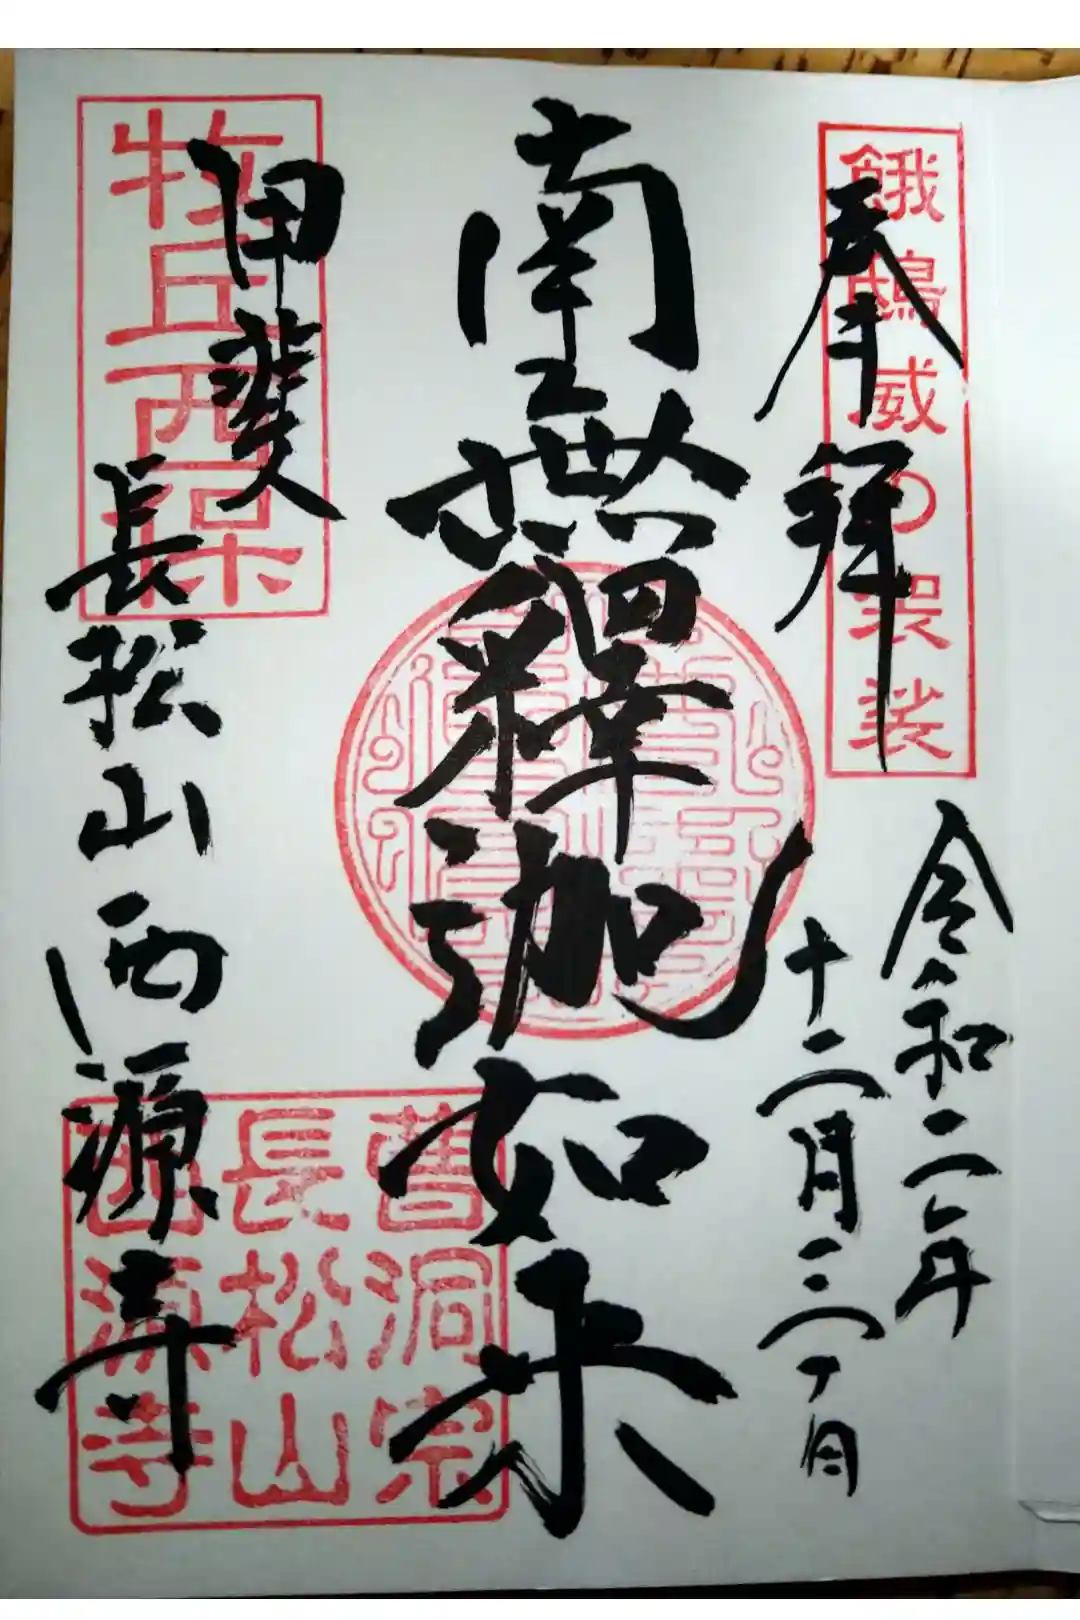 奉拝
餓鴟威の袈裟
令和二年
十二月三日
南無釋迦如来
甲斐
牧丘西保
長松山西源寺
曹洞宗
長松山
西源寺